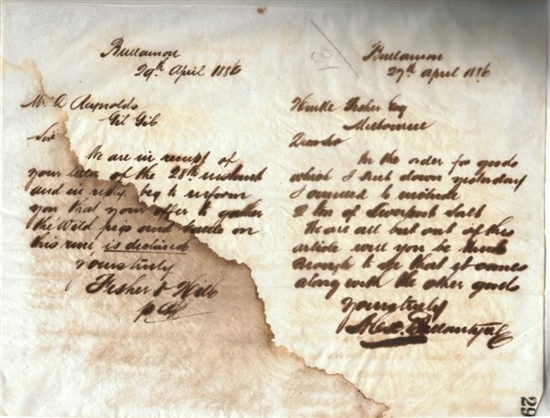 Bullamon
29th April 1886
Mr A Reynolds
Gil Gil
Sir
We are in receipt of
your letter of the 25th instant
and in reply beg to inform
you that your offer to gather
the Wild pigs and cattle on
this run is declined
yours truly
Fisher &
31
Bullamon
27th April 1886
Fisher Esq
Melbourne
Dear Sir
In the order for goods
which I sent down yesterday
I omitted to include
2 ton of Liverpool Salt
We are all but out of this
article will you be kind
enough to see that it comes
along with the other goods
yours truly
29